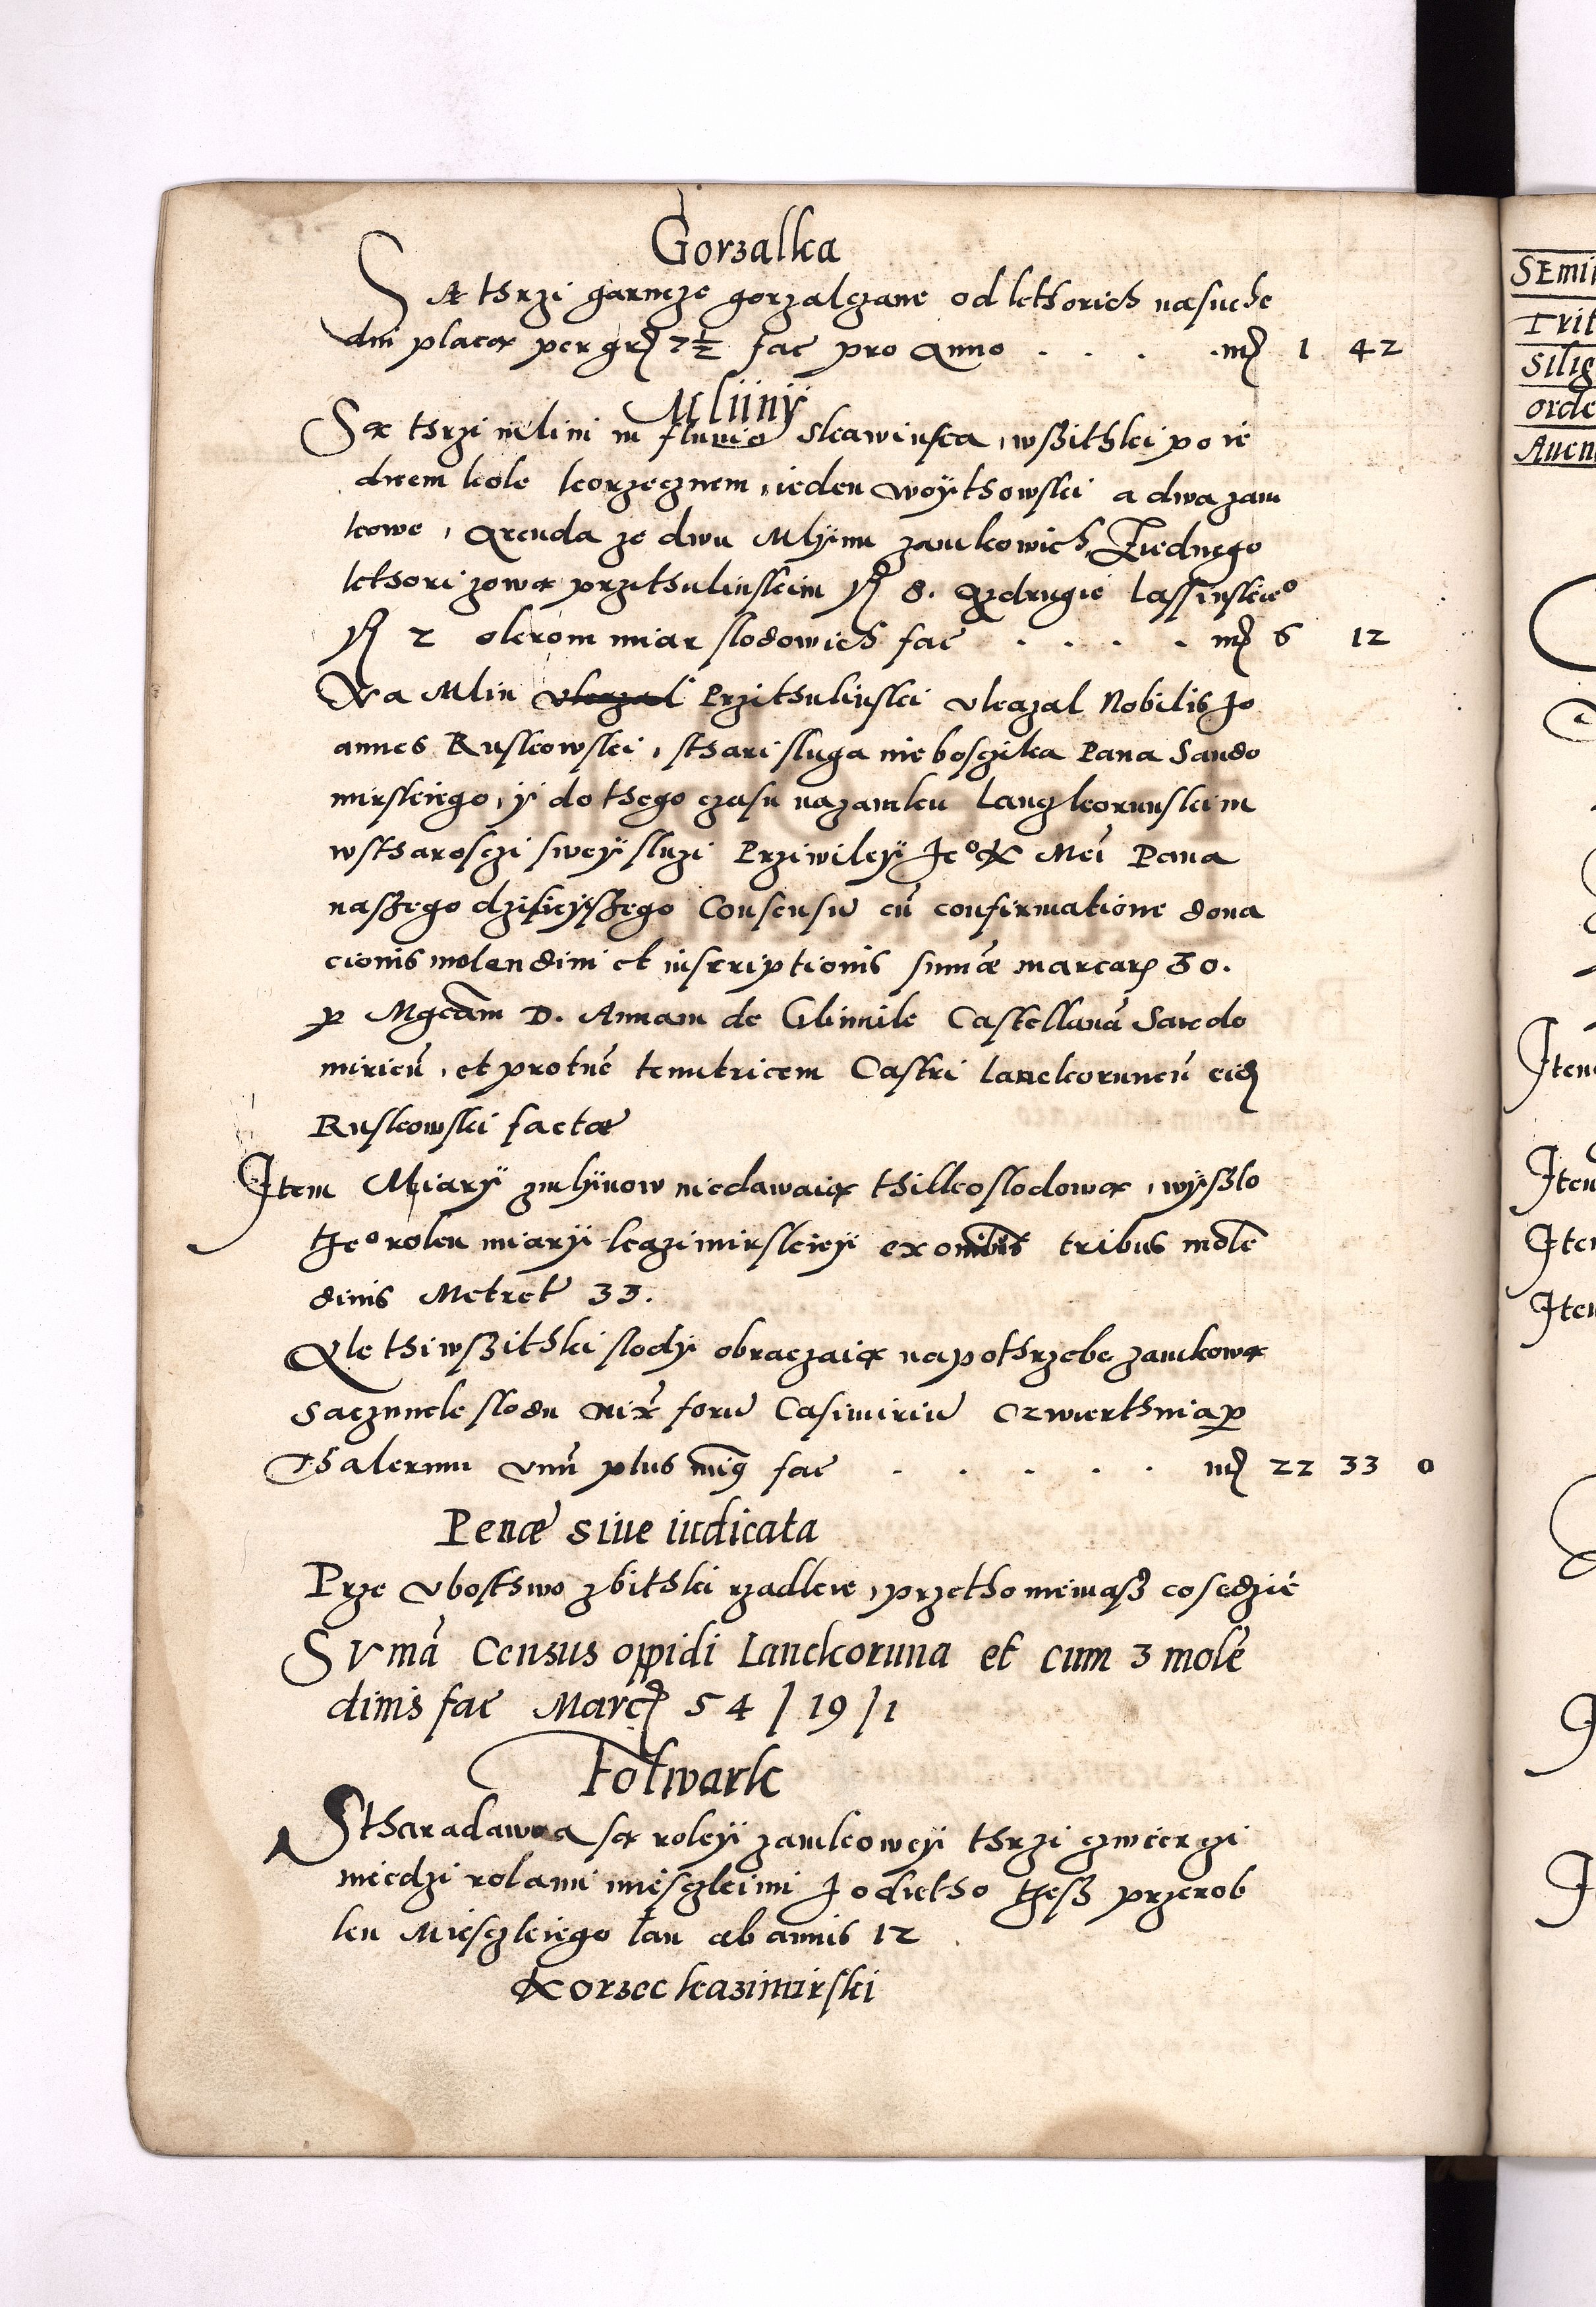 Gorzalka
Są thrzi garncze gorzalczane od kthorich na suche
dni placzą per gr 7½ fac pro Anno . . . . mr 1 42
Mliiny
Są thrzi mlini in fluvio Skawinka, wszithki po ie
dnem kole korzecznem, ieden woythowski a dwa zam
kowe, Arenda ze dwu Mlynu zamkowich, Ziednego
kthori zową przithulinskim fl 8. A z drugie Lassinskieᵒ
fl 2 okrom miar slodowich fac . . . . mr 6 12
Na Mlin ukazal Przithulinski ukazal Nobilis Jo
annes Ruskowski, sthari sluga nieboszczika Pana Sando
mirskiego, y do thego czasu na zamku Lanczkorunskim
w stharosczi swey sluzi Prziviley Jeᵒ K Mci Pana
naszego dzisieyszego Consensu cū confirmatione dona
cionis molendini et inscriptionis sum̄æ marcar 30.
p Mgcam D. Annam de Glinnik Castellanā Sando
miricn̄, et protunc̄ tenutricem Castri lanckoruncn̄ eid
Ruskowski factæ
Item Miary z mlynow nie dawaią thilko slodową, wyszlo
Jeᵒ roku miary kazimirskiey ex omnibus tribus molē
dinis Metret 33.
Ale thi wszithki slody obraczaią na pothrzebe zamkową
Saczunek slodu iux̄ foru Casimiriē Czwierthnia p
Thalerum unū plus min9 fac . . . . . mr 22 33 0
Penæ siue iudicata
Prze ubosthwo zbithki rzadkie, przetho niemasz co sedzic
SVmā Census oppidi Lanckoruna et cum 3 molē
dinis fac Marc 54 / 19 / 1
Folwark
Stharadawna są roley zamkowey thrzi czwierczi
miedzi rolami miesczkimi Jodietho thesz przerob
ku Miesczkiego lan ab annis 12
Korzec kazimirski
SEmi
Trit
Silig
orde
Auen
Item
Item
Item
Item